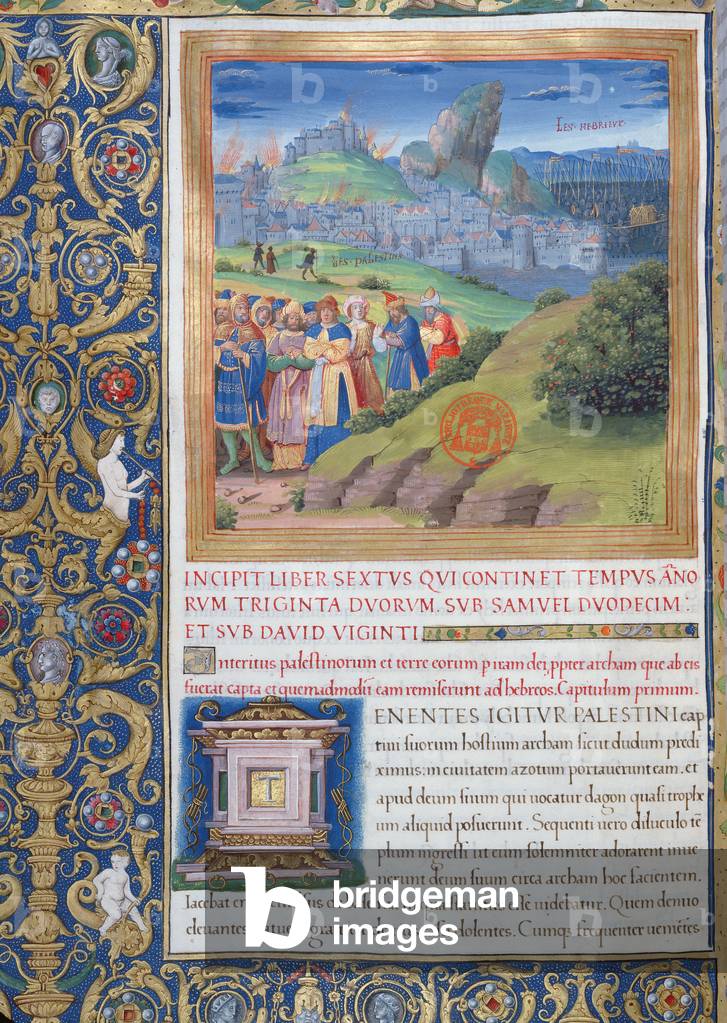 LES·HEBRIEVX·
LES·PALESTINS
INCIPIT LIBER SEXTVS QVI CONTINET TEMPVS AÑNO
RVM TRIGINTA DVORVM. SVB SAMVEL DVODECIM:
ET SVB DAVID VIGINTI
Interitus palestinorum et terre eorum p iram dei, ppter archam que ab eis
fuerat capta et quemadmodū eam remiserunt ad hebreos. Capitulum primum.
T
ENENTES IGITVR PALESTINI cap
tiui suorum hostium archam sicut dudum predi
ximus: in ciuitatem azotum portauerunt eam. et
apud deum suum qui uocatur dagon quasi trophe
um aliquid posuerunt. Sequenti uero diluculo tē
plum ingressi ut eum solemniter adorarent inue
nerunt deum suum circa archam hoc facientem.
Iacebat esse uidebatur. Quem denuo
eleuantes dolentes. Cunq3 frequenter uenietes
b bridgeman
images